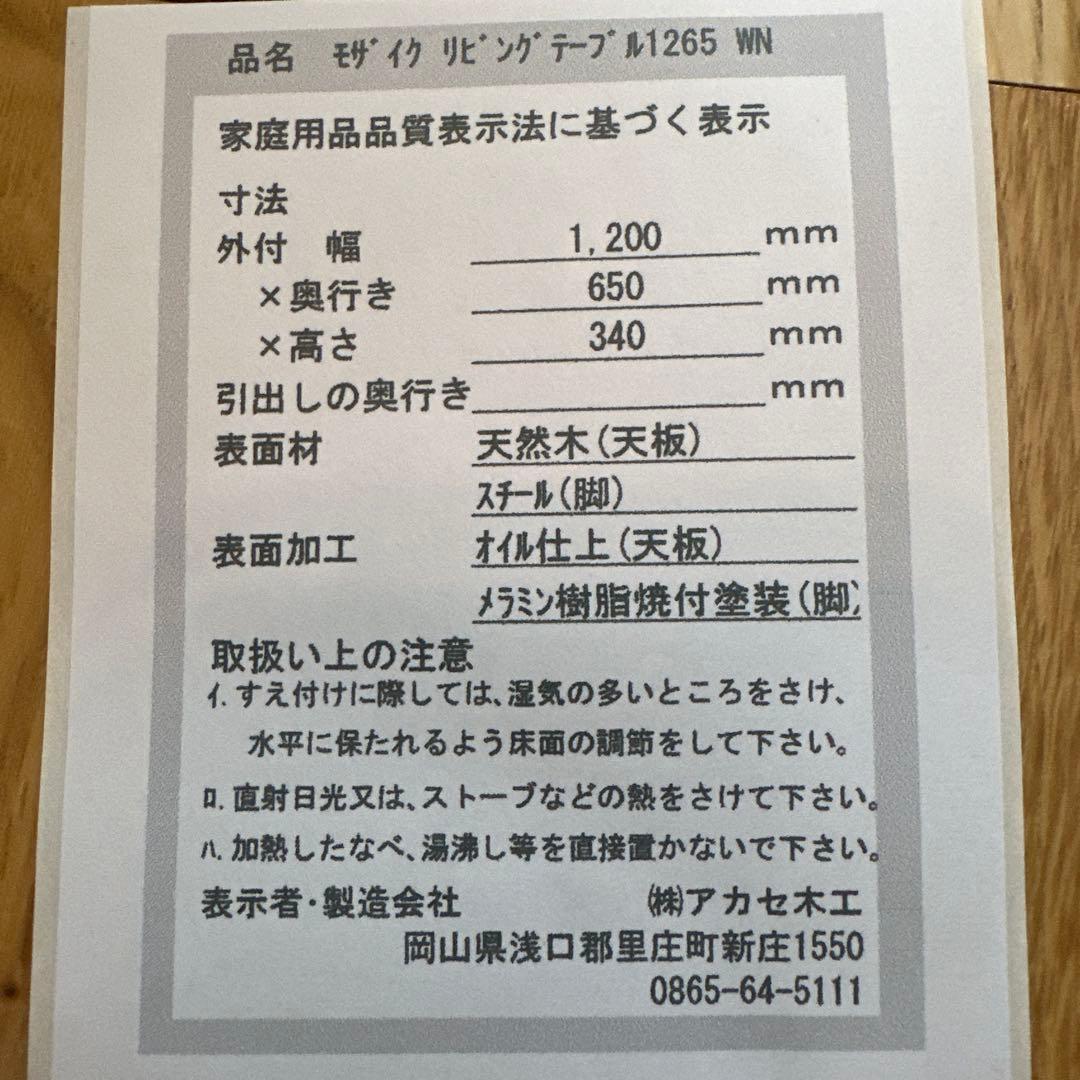 品名 ﾓｻﾞｲｸ ﾘﾋﾞﾝｸﾞﾃｰﾌﾞﾙ1265 WN
家庭用品品質表示法に基づく表示
寸法
外付 幅 1,200 mm
×奥行き 650 mm
×高さ 340 mm
引出しの奥行き mm
表面材 天然木(天板)
ｽﾁｰﾙ(脚)
表面加工 ｵｲﾙ仕上(天板)
ﾒﾗﾐﾝ樹脂焼付塗装(脚)
取扱い上の注意
ｲ.すえ付けに際しては、湿気の多いところをさけ、
水平に保たれるよう床面の調節をして下さい。
ﾛ.直射日光又は、ストーブなどの熱をさけて下さい。
ﾊ.加熱したなべ、湯沸し等を直接置かないで下さい。
表示者・製造会社 ㈱アカセ木工
岡山県浅口郡里庄町新庄1550
0865-64-5111